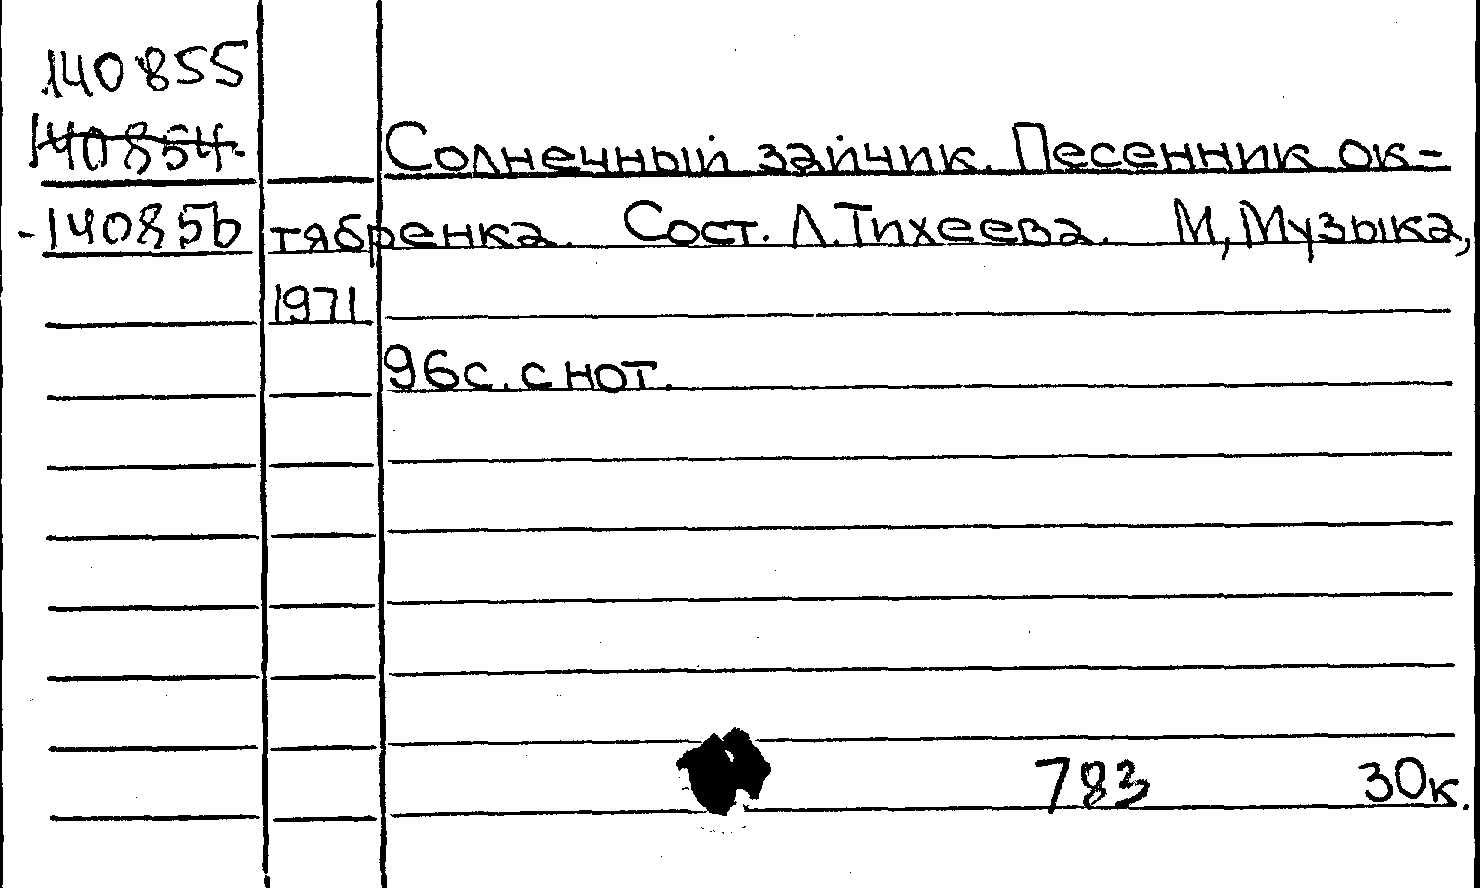 140855
140854
Солнечный зайчик. Песенник ок-
-140856 тябренка. Сост. Л. Тихеева. М, Музыка,
1971
96с. с нот.
783 30к.